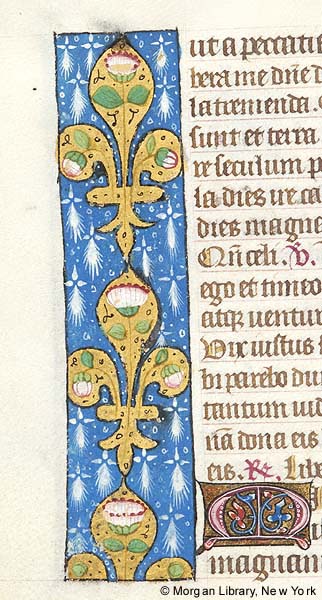 ut a peccatis
bera me dñe d
la tremenda.
sunt et terra
re seculum p
la dies ire ca
dies magne
Qñ celi. V.
ego et timeo
atq ventur
Vix iustus
bi parebo du
tantum uid
nã dona eis
eis. R. Libe
magnam
© Morgan Library, New York